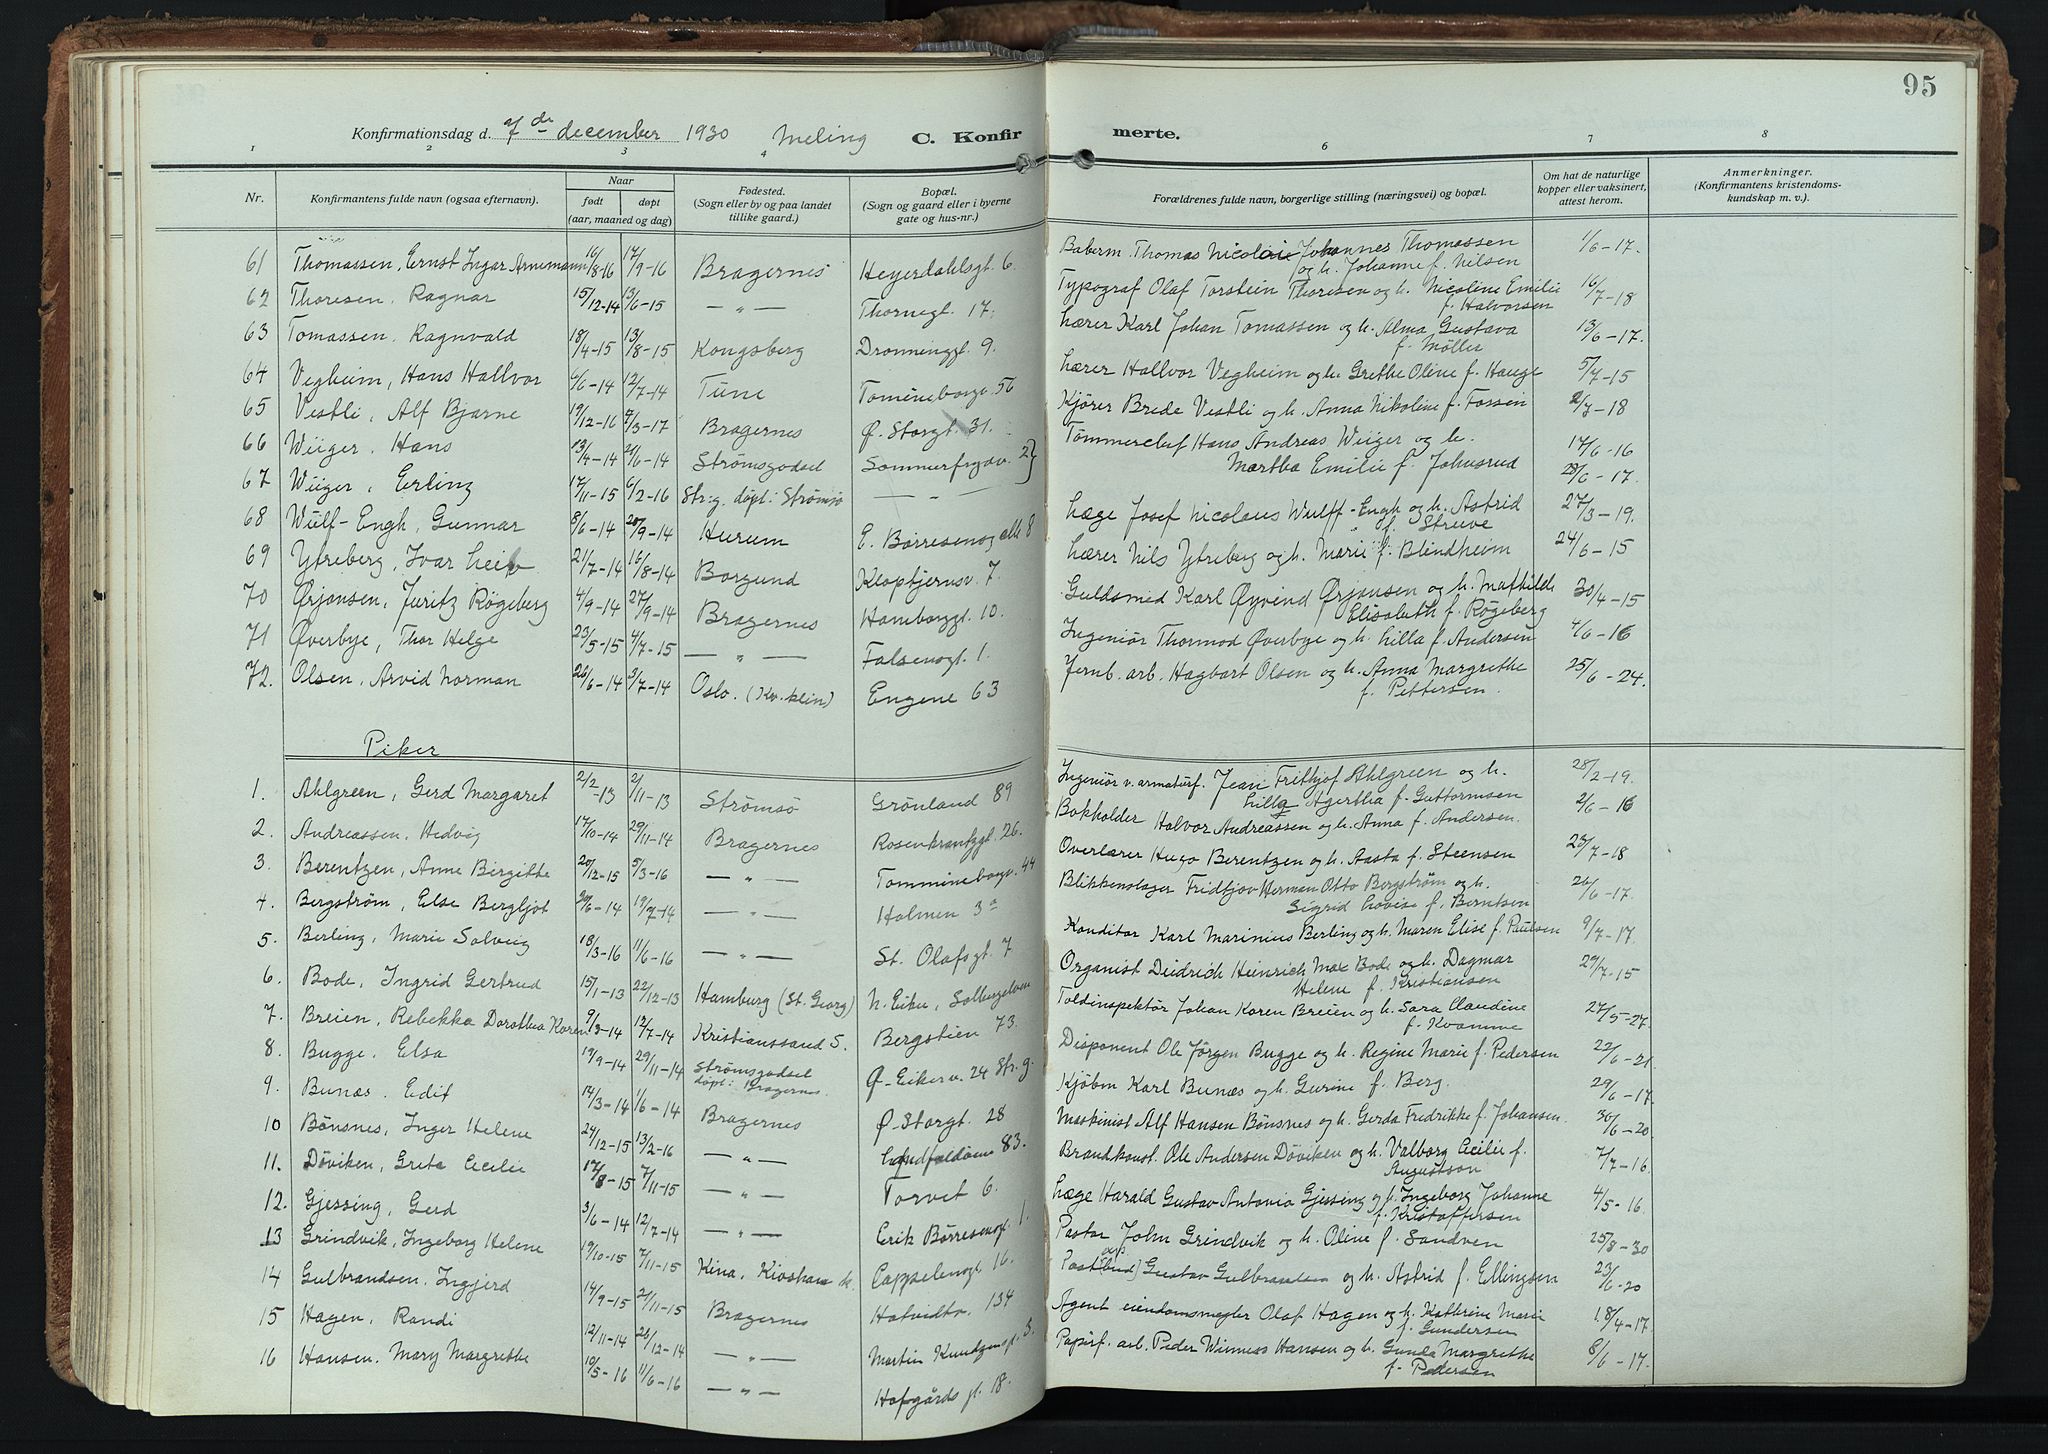 95
Konfirmationsdag d. 7 de december 1930 Meling C. Konfirmerte.
1 2 3 4 6 7 8
Nr. Konfirmantens fulde navn (ogsaa efternavn). Naar født døpt (aar, maaned og dag) Fødested. (Sogn eller by og paa landet tillike gaard.) Bopæl. (Sogn og gaard eller i byerne gate og hus-nr.) Forældrenes fulde navn, borgerlige stilling (næringsvei) og bopæl. Om hat de naturlige kopper eller vaksinert, attest herom. Anmerkninger. (Konfirmantens kristendomskundskap m. v.)
61 Thomassen, Ernst Ingar Arnemann 16/8-16 17/9-16 Bragernes Heyerdahlsgt. 6. Thomas Nicolai Johannes Thomassen og h. Johanne f. Nilsen 1/6-17.
62 Thoresen, Ragnar 15/12-14 13/6-15 — " — Thornegt. 17. Typograf Olaf Torstein Thoresen og h. Nicoline Emilie f. Halvorsen 16/7-18
63 Tomassen, Ragnvald 18/4-15 13/8-15 Kongsberg Dronninggt. 9. Lærer Karl Johan Tomassen og h. Alma Gustava f. Møller 13/6-17.
64 Vegheim, Hans Hallvor 4/6-14 12/7-14 Tune Tomineborgv. 56 Lærer Hallvor Vegheim og h. Grethe Oline f. Hauge 5/7-15
65 Vestli, Alf Bjarne 19/12-16 4/3-17 Bragernes Ø. Storgt. 31. Kjører Brede Vestli og h. Anna Nikoline f. Fossen 2/7-18
66 Wiiger, Hans 13/4-14 21/6-14 Strømsgodset Sommerfrydv. 2} Tømmerchef Hans Andreas Wiiger og h. Martha Emilie f. Johnsrud 17/6-16
67 Wiiger, Erling 17/11-15 6/2-16 Str:g. døpt: Strømsø — " — 28/6-17.
68 Wulf-Engh, Gunnar 8/6-14 20/9-14 Hurum E. Børresens alle 8 Læge Josef Nicolaus Wulff-Engh og h. Astrid f. Struve 27/3-19.
69 Ytreberg, Ivar Leiv 21/7-14 16/8-14 Borgund Kloptjernsv. 7. Lærer Nils Ytreberg og h. Marie f. Blindheim 24/6-15
70 Ørjansen, Juritz Røgeberg 4/9-14 27/9-14 Bragernes Hamborggt. 10. Guldsmed Karl Øyvind Ørjansen og h. Mathilde Elisabeth f. Røgeberg 30/4-15
71 Øverbye, Thor Helge 23/5-15 4/7-15 — " — Falsensgt. 1. Ingeniør Thormod Øverbye og h. Lilla f. Andersen 4/6-16
72. Olsen, Arvid Norman 26/6-14 3/7-14 Oslo. (Kv. klin) Engene 63 Jernb. arb. Hagbart Olsen og h. Anna Margrethe f. Pettersen. 25/6-24.
Piker
1. Ahlgreen, Gerd Margaret 2/2-13 2/11-13 Strømsø Grønland 89 Ingeniør v. armaturf. Jean Frithjof Ahlgreen og h. Lilly Agertha f. Guttormsen 28/2-19.
2. Andreassen, Hedvig 17/10-14 29/11-14 Bragernes Rosenkrantzgt. 26. Bokholder Halvor Andreassen og h. Anna f. Andersen. 2/6-16
3. Berentzen, Anne Birgitte 20/12-15 5/3-16 — " — Tommineborgv. 44 Overlærer Hugo Berentzen og h. Aasta f. Steensen 23/7-18
4. Bergstrøm, Else Bergljot 20/6-14 19/7-14 — " — Holmen 3a Blikkenslager Fridtjov Herman Otto Bergstrøm og h. Sigrid Lovise f. Berntsen 26/6-17.
5. Berling, Marie Solveig 18/3-16 11/6-16 — " — St. Olafsgt. 7 Konditor Karl Marinius Berling og h. Maren Elise f. Paulsen 9/7-17.
6. Bode, Ingrid Gertrud 15/1-13 22/12-13 Hamburg (St. Georg) N. Eiker, Solbergelven Organist Diedrich Heinrich Max Bode og h. Dagmar Helene f. Kristiansen 29/7-15
7. Breien, Rebekka Dorothea Koren 9/3-14 12/7-14 Kristianssand S. Bergstien 73. Toldinspektør Johan Koren Breien og h. Sara Claudine f. Kvamme 27/5-27.
8. Bugge, Elsa 19/9-14 29/11-14 Strømsgodset døpt: Bragernes. Ø-Eikerv. 24 Str. g. Disponent Ole Jørgen Bugge og h. Regine Marie f. Pedersen 22/6-21.
9. Bunæs, Edit 14/3-14 1/6-14 Bragernes Ø-Storgt. 28 Kjøbm Karl Bunæs og h. Gurine f. Berg. 29/6-17.
10 Bønsnes, Inger Helene 24/12-15 13/2-16 — " — Landfaldøine 83. Maskinist Alf Hansen Bønsnes og h. Gerda Fredrikke f. Johansen. 30/6-20
11. Døviken, Grete Cecilie 17/8-15 7/11-15 — " — Torvet 6. Brandkonst. Ole Andersen Døviken og h. Valborg Cecilie f. Augustson 7/7-16.
12. Gjessing, Gerd 3/6-14 12/7-14 — " — Erik Børresensgt. 1. Læge Harald Gustav Antonio Gjessing og h. Ingeborg Johanne f. Kristoffersen 4/5-16.
13 Grindvik, Ingeborg Helene 19/10-15 7/11-15 Kina, Cappelensgt. 16. Pastor John Grindvik og h. Oline f. Sandven 25/8-30
14 Gulbrandsen, Ingjerd 14/9-15 21/11-15 Bragernes Hotvedtv. 134 Postbud Gustav Gulbrandsen og h. Astrid f. Ellingsen 23/6-20
15 Hagen, Randi 12/11-14 26/12-14 — " — Martin Knudsens pl. 3. Agent eiendomsmegler Olaf Hagen og h. Kathrine Marie f. Gundersen 18/4-17.
16 Hansen, Mary Margrethe 19/5-16 11/6-16 — " — Hofgårds gt. 18. Papirf. arb. Peder Hansen og h. Gunda Margrethe f. Pedersen 8/6-17.